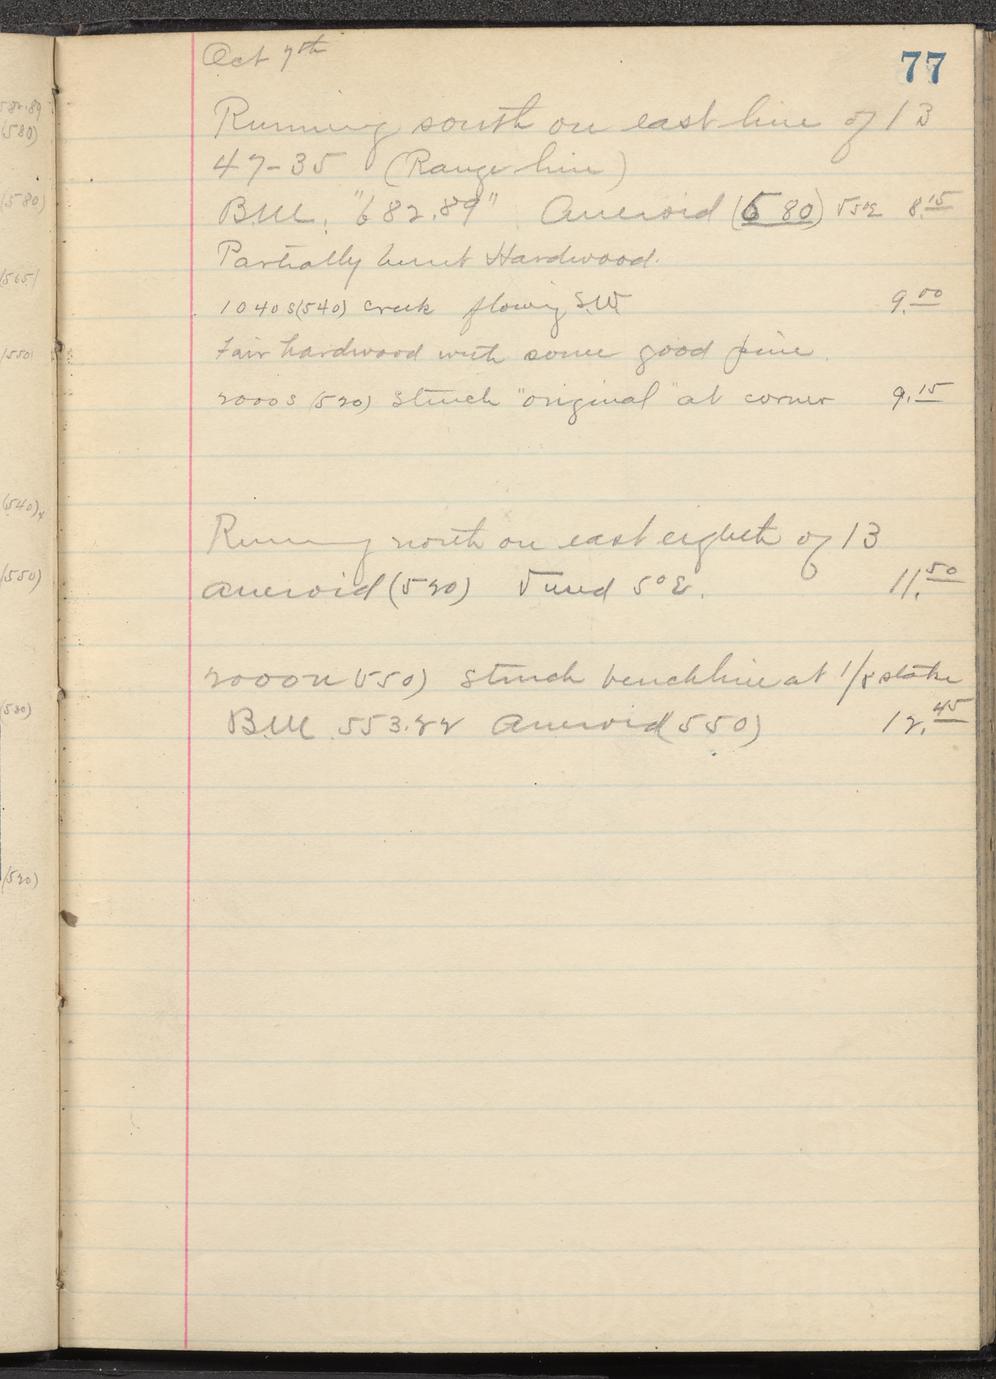 77
Oct 7th
Running south on east line of 13
47-35 (Range line)
B.M. "682.89" Aneroid (680) V 5°E 8.15
Partially burnt Hardwood.
1040 S (540) creek flowing S.W 9.00
Fair hardwood with some good pine.
2000 S (520) Struck "original" at corner 9.15
Running north on east eighth of 13
Aneroid (520) V used 5°E. 11.50
2000 N (550) Struck benchline at 1/8 stake
B.M. 553.22 Aneroid (550) 12.45
582.89
(580)
(580)
(565)
(550)
(540)x
(550)
(520)